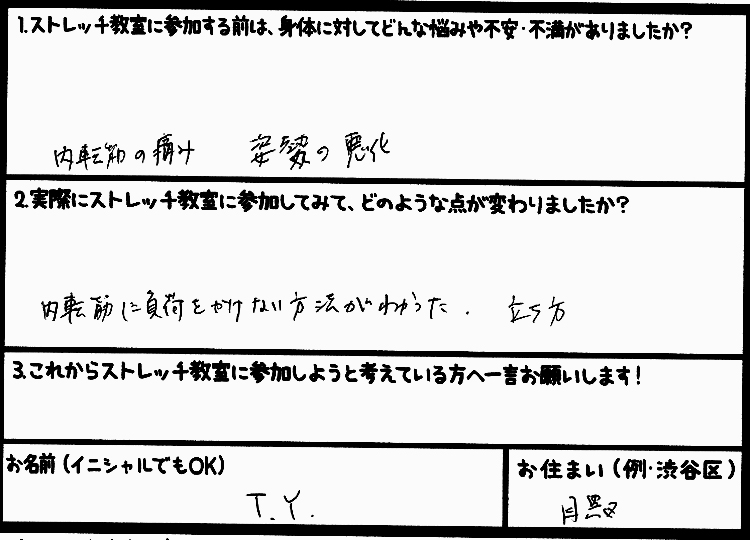 1.ストレッチ教室に参加する前は、身体に対してどんな悩みや不安・不満がありましたか?
内転筋の痛み 姿勢の悪化
2.実際にストレッチ教室に参加してみて、どのような点が変わりましたか?
内転筋に負荷をかけない方法がわかった. 立ち方
3.これからストレッチ教室に参加しようと考えている方へ一言お願いします!
お名前(イニシャルでもOK)
T.Y.
お住まい(例・渋谷区)
目黒区